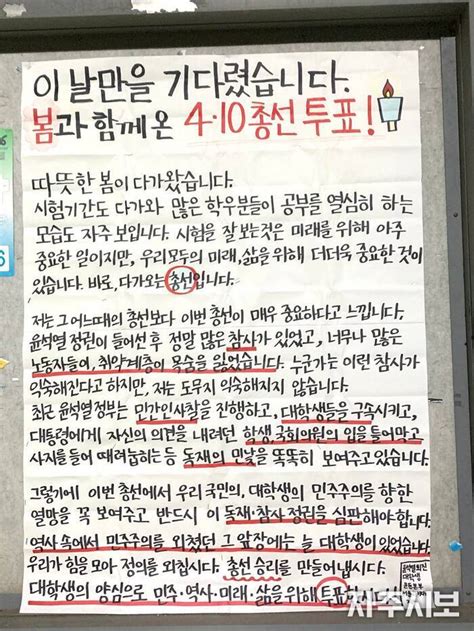 이 날만을 기다렸습니다.
봄과 함께 온 4·10 총선 투표!
따뜻한 봄이 다가왔습니다.
시험기간도 다가와 많은 학우분들이 공부를 열심히 하는
모습도 자주 보입니다. 시험을 잘 보는것은 미래를 위해 아주
중요한 일이지만, 우리모두의 미래,삶을 위해 더더욱 중요한 것이
있습니다. 바로, 다가오는 총선입니다.
저는 그 어느때의 총선보다 이번 총선이 매우 중요하다고 느낍니다.
윤석열 정권이 들어선 후 정말 많은 참사가 있었고, 너무나 많은
노동자들이, 취약계층이 목숨을 잃었습니다. 누군가는 이런 참사가
익숙해진다고 하지만, 저는 도무지 익숙해지지 않습니다.
최근 윤석열정부는 민간인사찰을 진행하고, 대학생들을 구속시키고,
대통령에게 자신의 의견을 내려던 학생,국회의원의 입을 틀어막고
사지를 들어 때려눕히는 등 독재의 민낯을 똑똑히 보여주고있습니다.
그렇기에 이번 총선에서 우리 국민의, 대학생의 민주주의를 향한
열망을 꼭 보여주고 반드시 이 독재·참사 정권을 심판해야합니다.
역사 속에서 민주주의를 외쳤던 그 앞장에는 늘 대학생이 있었습니다.
우리가 힘을 모아 정의를 외칩시다. 총선 승리를 만들어냅시다.
대학생의 양심으로 민주·역사·미래·삶을 위해 투표
윤석열퇴진
대학생
운동본부
자주시보
6